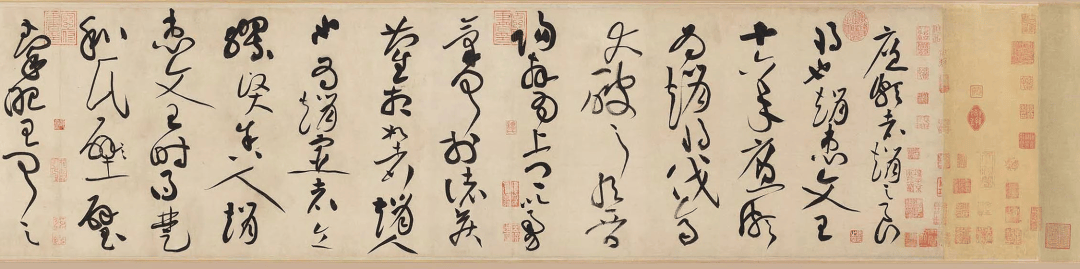 廉頗者趙之良
將也趙惠文王
十六年廉頗
為趙將伐齊
大破之取晉
陽拜為上卿以勇
氣聞於諸侯
藺相如者趙人
也為趙宦者令
繆賢舍人趙
惠文王時得楚
和氏壁璧
秦昭王聞之